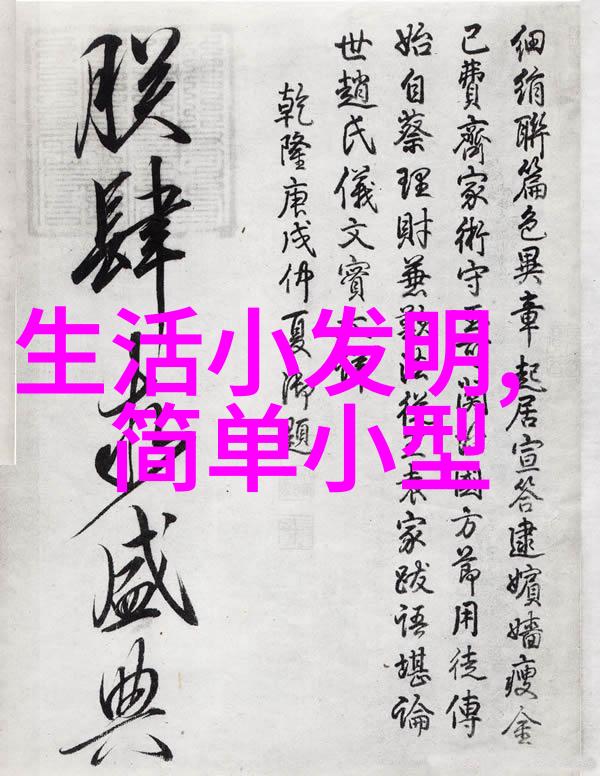 生活小发明,
简单小型
細絹聯篇色異章起居宣答逮嬪嬙瘦金
已費齊家術守國方節用徒傳
始自蔡理財兼法從家跋語堪論
世趙氏儀文賓
乾隆庚戌仲夏御題
朕肆盛典